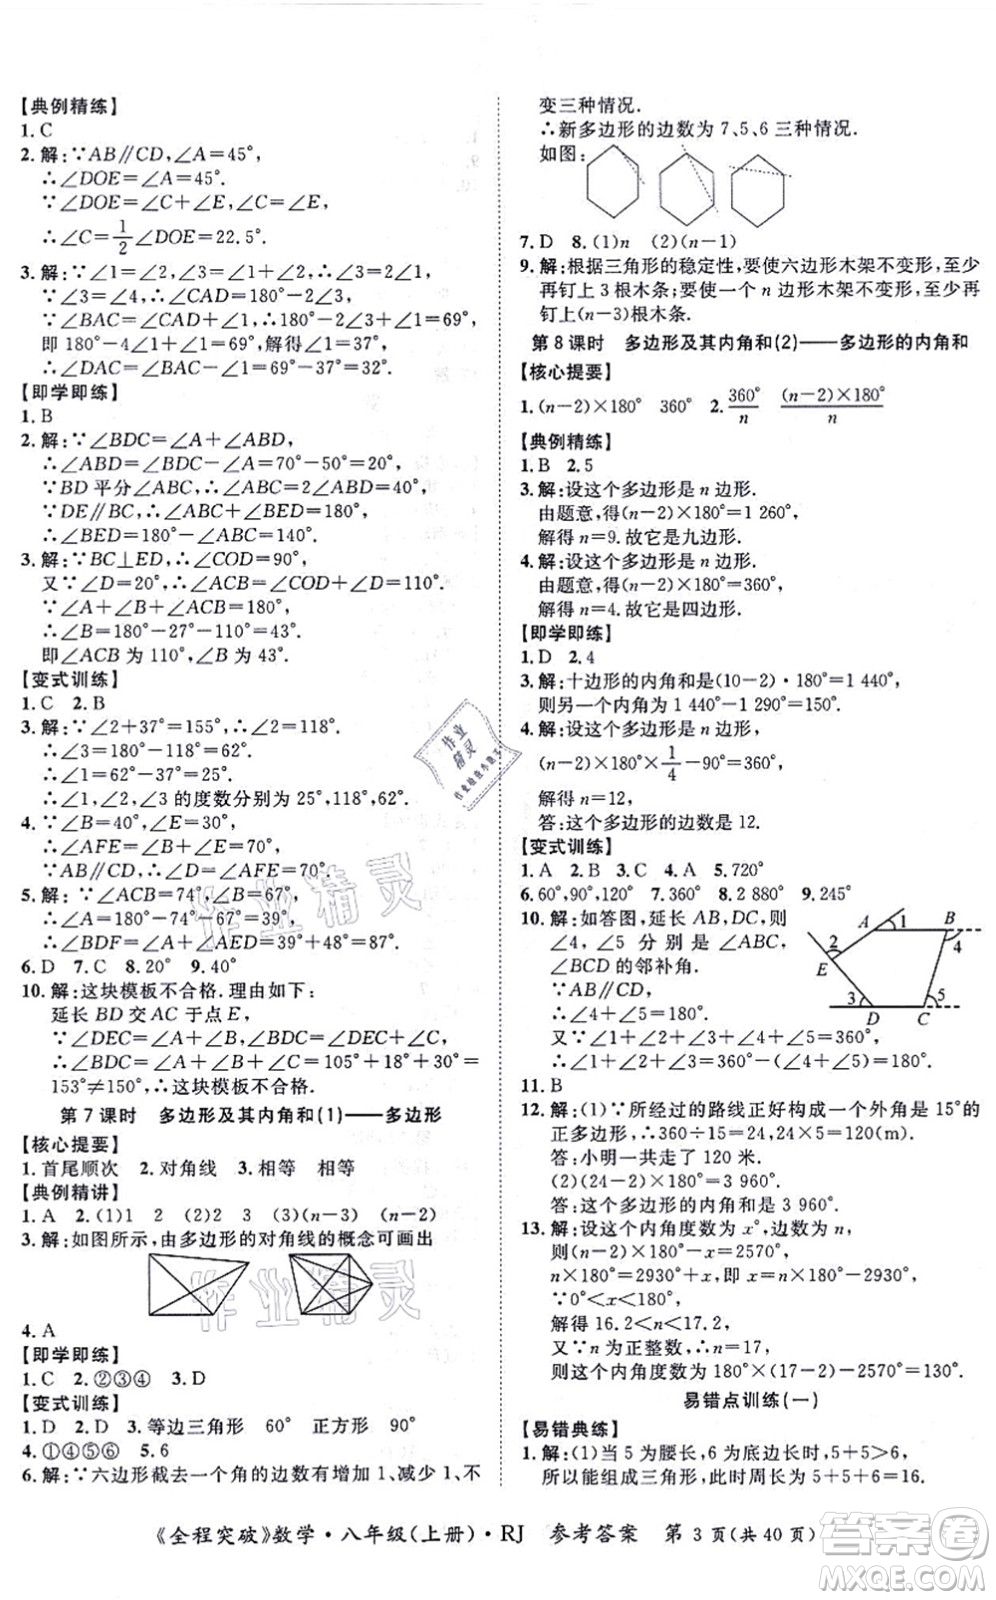 【典例精练】
1. C
2. 解:∵AB∥CD,∠A=45°,
∴∠DOE=∠A=45°.
∵∠DOE=∠C+∠E,
∴∠C=1/2∠DOE=22.5°.
3. 解:∵∠1=∠2,∠3=∠1+∠2,∴∠3=2∠1.
∵∠3=∠4,∴∠CAD=180°-4∠1.
∵∠BAC=∠CAD+∠1=69°,
即 180°-4∠1+∠1=69°,解得∠1=37°.
∴∠DAC=∠BAC-∠1=69°-37°=32°.
【即学即练】
1. B
2. 解:∵∠BDC=∠A+∠ABD,
∴∠ABD=∠BDC-∠A=70°-50°=20°.
∵BD 平分∠ABC,∴∠ABC=2∠ABD=40°,
∵DE∥BC,∴∠ABC+∠BED=180°,
∴∠BED=180°-∠ABC=140°.
3. 解:∵BC⊥ED,∴∠COD=90°,
又∵∠D=20°,∴∠ACB=∠COD+∠D=110°.
∵∠A+∠B+∠ACB=180°,
∴∠B=180°-27°-110°=43°.
即∠ACB 为 110°,∠B 为 43°.
【变式训练】
1. C 2. B
3. 解:∵∠2+37°=155°,∴∠2=118°.
∴∠3=180°-118°=62°.
∴∠1=180°-37°-118°=25°.
∴∠1、∠2、∠3 的度数分别为 25°,118°,62°.
4. ∵∠B=40°,∠E=30°,
∴∠AFE=∠B+∠E=70°.
∵AB∥CD,∴∠D=∠AFE=70°.
5. 解:∵∠ACB=74°,∠B=67°,
∴∠A=180°-74°-67°=39°.
∴∠BDF=∠A+∠AED=39°+48°=87°.
6. D 7. C 8. 20° 9. 40°
10. 解:这块模板不合格.理由如下:
延长 BD 交 AC 于点 E,
∵∠DEC=∠A+∠B,∠BDC=∠DEC+∠C,
∴∠BDC=∠A+∠B+∠C=105°+18°+30°=
153°≠150°,∴这块模板不合格.
第 7 课时 多边形及其内角和(1)——多边形
【核心提要】
1. 首尾顺次 2. 对角线 3. 相等 相等
【典例精讲】
1. A 2. (1)1 2 (2)2 3 (3)(n-3) (n-2)
3. 解:如图所示,由多边形的对角线的概念可画出
4. A
【即学即练】
1. C 2. ②③④ 3. D
【变式训练】
1. D 2. D 3. 等边三角形 60° 正方形 90°
4. ①④⑤⑥ 5. 6
6. 解:∵六边形截去一个角的边数有增加 1、减少 1、不
变三种情况.
∴新多边形的边数为 7、5、6 三种情况.
如图:
7. D 8. (1)n (2)(n-1)
9. 解:根据三角形的稳定性,要使六边形木架不变形,至少
再钉上 3 根木条;要使一个 n 边形木架不变形,至少再
钉上(n-3)根木条.
第 8 课时 多边形及其内角和(2)——多边形的内角和
【核心提要】
1. (n-2)×180° 360° 2. 360°/n (n-2)×180°/n
【典例精练】
1. B 2. 5
3. 解:设这个多边形是 n 边形.
由题意,得(n-2)×180°=1 260°,
解得 n=9.故它是九边形.
4. 解:设这个多边形是 n 边形.
由题意,得(n-2)×180°=360°,
解得 n=4.故它是四边形.
【即学即练】
1. D 2. 4
3. 解:十边形的内角和是(10-2)·180°=1 440°,
则另一个内角为 1 440°-1 290°=150°.
4. 解:设这个多边形的边数是 n,
(n-2)×180°×1/4-90°=360°,
解得 n=12,
答:这个多边形的边数是 12.
【变式训练】
1. A 2. B 3. C 4. A 5. 720°
6. 60°,90°,120° 7. 360° 8. 2 880° 9. 245°
10. 解:如答图,延长 AB,DC,则
∠4,∠5 分别是∠ABC,
∠BCD 的邻补角.
∵AB∥CD,
∴∠4+∠5=180°.
又∵∠1+∠2+∠3+∠4+∠5=360°,
∴∠1+∠2+∠3=360°-(∠4+∠5)=180°.
A 1 B 4
2 E
3 D C 5
11. B
12. 解:(1)∵所经过的路线正好构成一个外角是 15°的
正多边形,∴360÷15=24,24×5=120(m).
答:小明一共走了 120 米.
(2)(24-2)×180°=3 960°.
答:这个多边形的内角和是 3 960°.
13. 解:设这个内角度数为 x°,边数为 n,
则(n-2)×180°-x=2570°,
n×180°=2930°+x,即 x=n·180°-2930°,
∵0°<x<180°,
解得 16.2<n<17.2,
又∵n 为正整数,∴n=17,
则这个内角度数为 180°×(17-2)-2570°=130°.
易错点训练(一)
【易错典练】
1. 解:(1)当 5 为腰长,6 为底边长时,5+5>6,
所以能组成三角形,此时周长为 5+5+6=16.
《全程突破》数学·八年级(上册)·RJ 参考答案 第 3 页(共 40 页)
作业精灵
作业精灵
作业精灵
答案圈
MXQE.COM